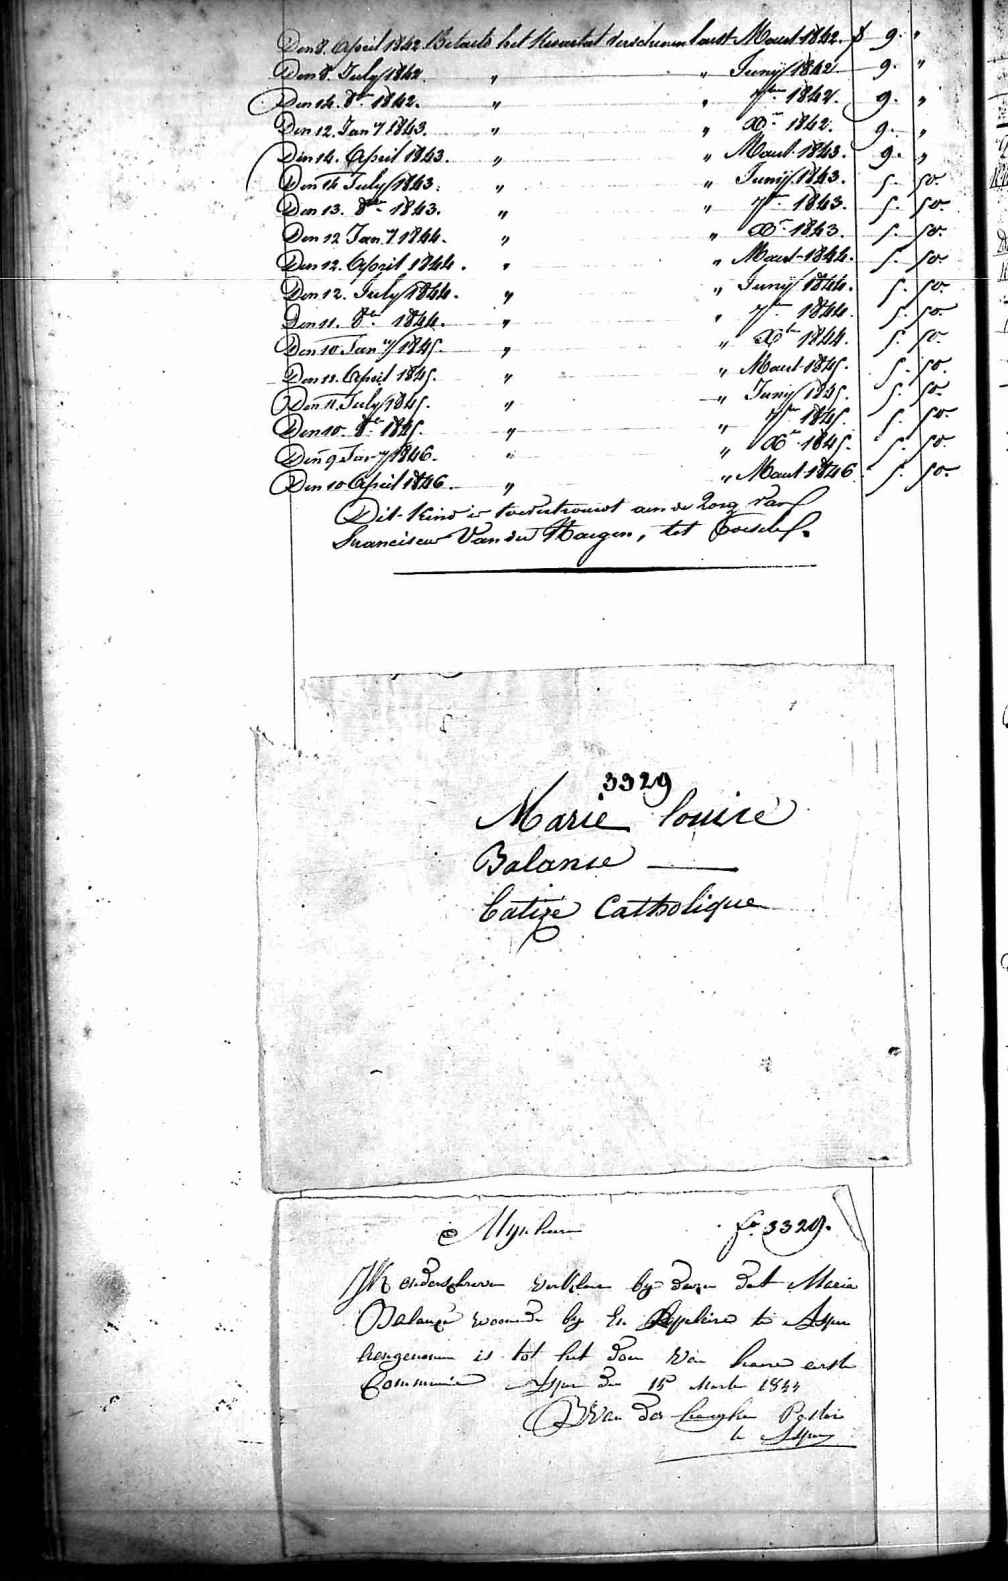 Den 8. April 1842 Betaeld het Kwartal verschenen laest Maert 1842. f 9. "
Den 8. July 1842. " " Juny 1842 9. "
Den 14. 8ber 1842. " " 7ber 1842. 9. "
Den 12. Jany 1843. " " Xber 1842. 9. "
Den 14. April 1843. " " Maert 1843. 9. "
Den 14 July 1843. " " Juny 1843. 5. 50.
Den 13. 8ber 1843. " " 7ber 1843. 5. 50.
Den 12 Jany 1844. " " Xber 1843. 5. 50.
Den 12. April 1844. " " Maert 1844. 5. 50
Den 12. July 1844. " " Juny 1844. 5. 50
Den 11. 8ber 1844. " " 7ber 1844. 5. 50.
Den 10 Jany 1845. " " Xber 1844. 5. 50.
Den 12. April 1845. " " Maert 1845. 5. 50.
Den 11. July 1845. " " Juny 1845. 5. 50
Den 10. 8ber 1845. " " 7ber 1845. 5. 50
Den 9 Jany 1846. " " Xber 1845. 5. 50.
Den 10 April 1846. " " Maert 1846 5. 50.
Dit Kind is toevertrouwt aen de zorg van
Franciscus Van der Haegen, tot
3329
Marie louise
Balance
Catholique
Mynheer fo 3329.
IK onderschreven verklaere by dezen dat Maria
Balance woonende by te
aengenomen is tot het doen van haere eerste
Communie den 15 Maert 1844
Van der Pastor
te